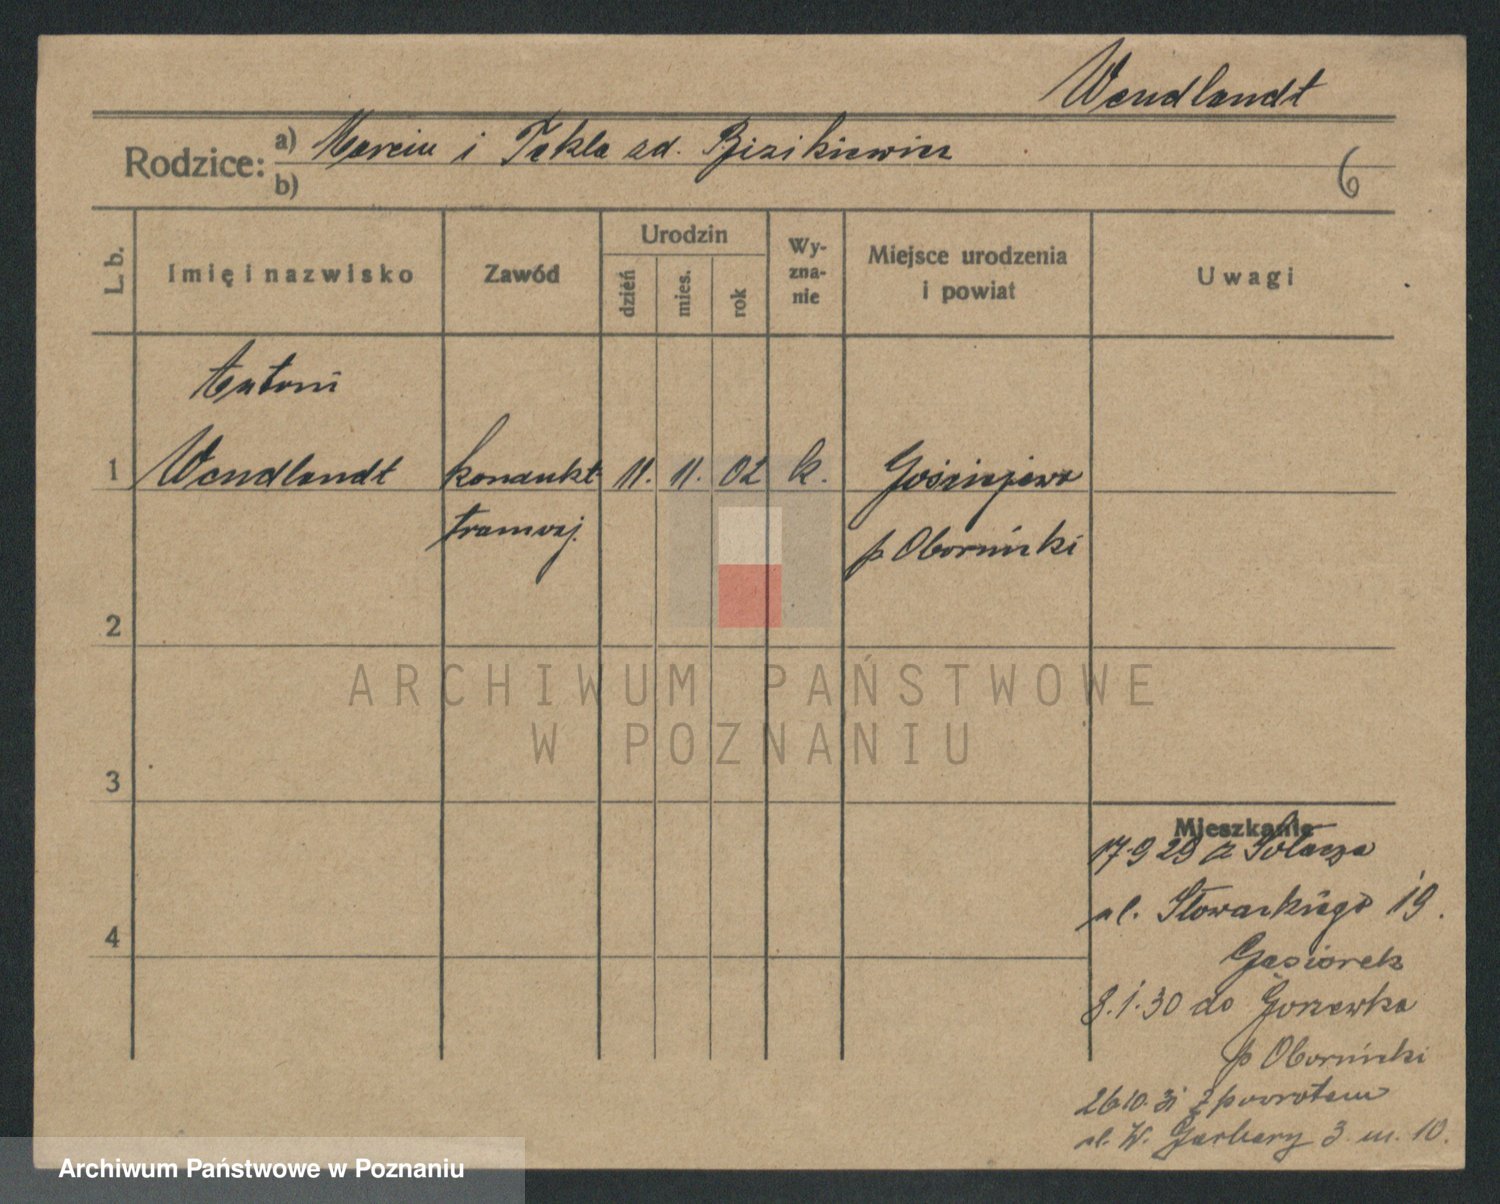 Wendlandt
Rodzice: a) Marcin i Tekla zd.
b)
6
L. b.
Imię i nazwisko
Zawód
Urodzin
dzień
mies.
rok
Wy-
zna-
nie
Miejsce urodzenia
i powiat
Uwagi
Antoni
1 Wendlandt kondukt. 11. 11. 02 k. Gościejewo
tramwaj. p Obornicki
2
ARCHIWUM PAŃSTWOWE
W POZNANIU
3
Mieszkanie
17.9 29 z Sołacza
ul. Słowackiego 19.
4
Gąsiorek
8.1.30 do
p Obornicki
26.10.31 z powrotem
ul. W. Garbary 3 m. 10.
Archiwum Państwowe w Poznaniu